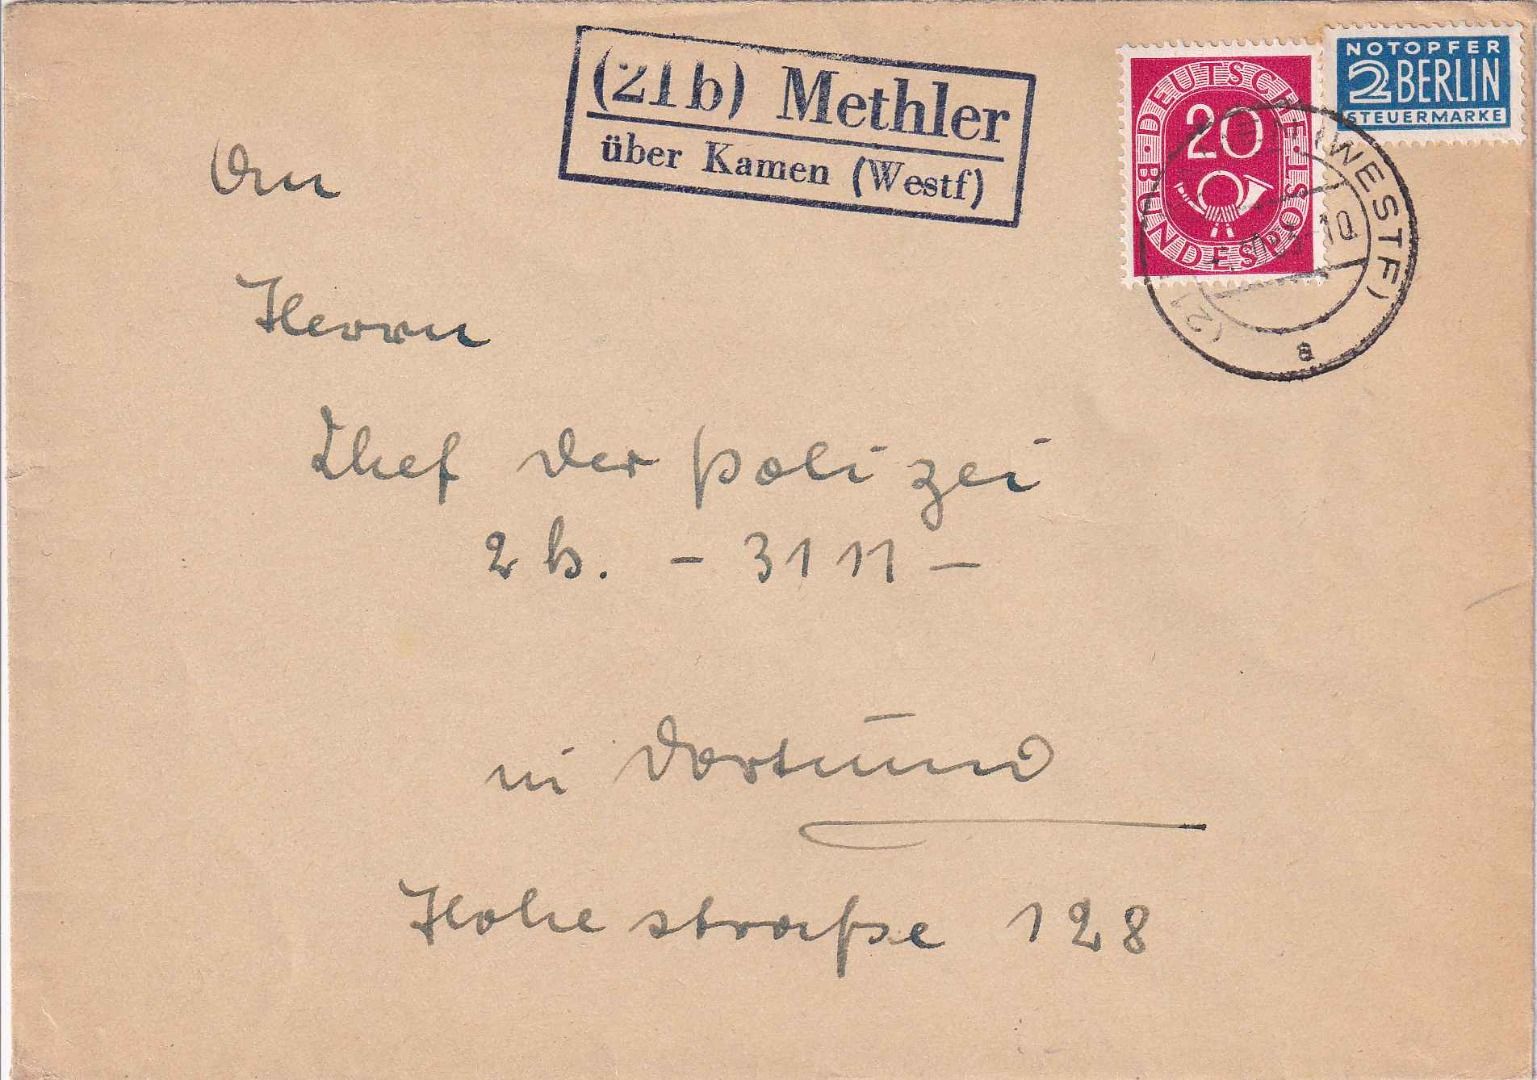 (21b) Methler
über Kamen (Westf)
DEUTSCHE BUNDESPOST
20
NOTOPFER
2 BERLIN
STEUERMARKE
(21 (WESTF)
-10
a
An
Herrn
Chef der Polizei
2 b. - 3111 -
in Dortmund
Hohestraße 128